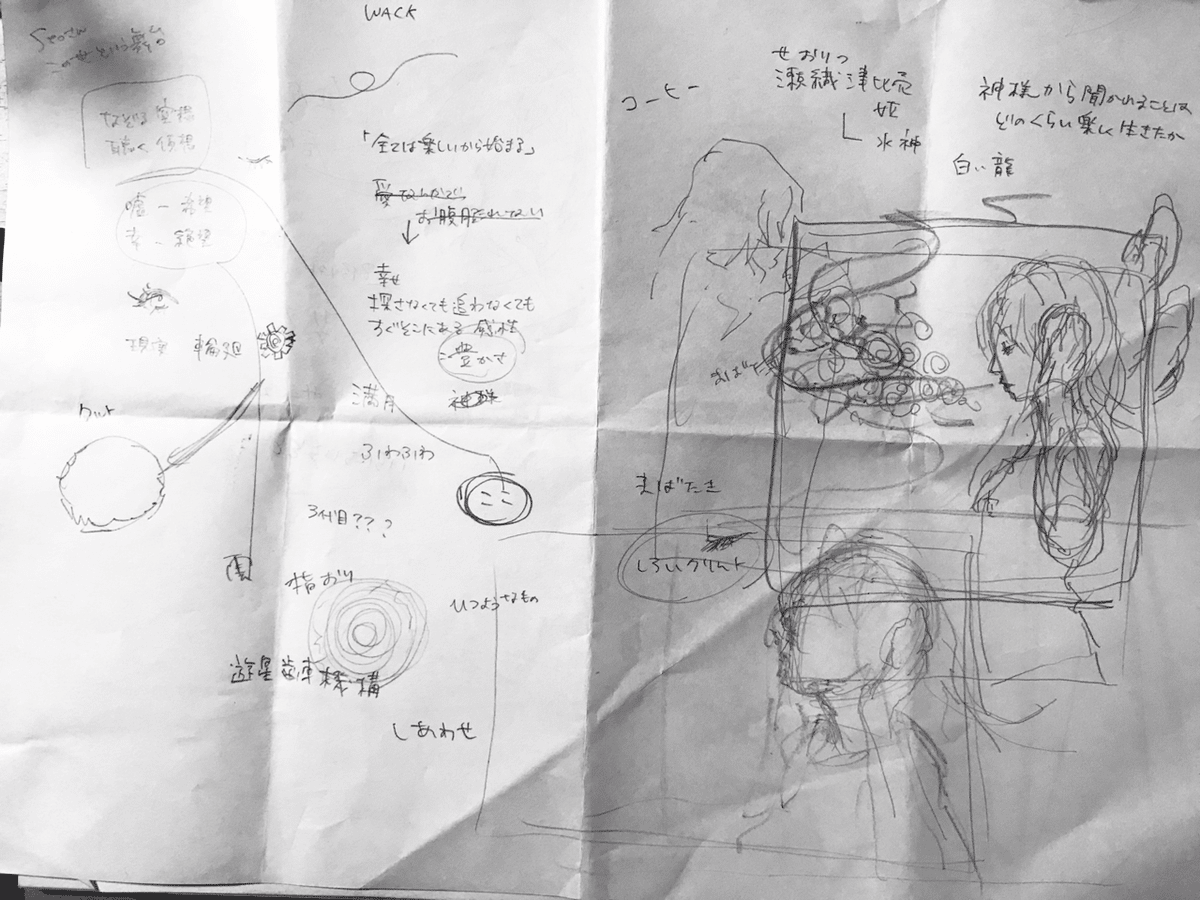 WACK
この世という舞台
なぞる 空想
聴く 仮想
嘘 ー 希望
幸 ー 絶望
現実 輪廻
「全ては楽しいから始まる」
愛なんかで
お腹膨れない
幸せ
探さなくても追わなくても
すぐそこにある 感性
豊かさ
満月
ふわふわ
3代目???
指おり
遊星歯車機構
ひつようなもの
しあわせ
コーヒー
せおりつ
瀬織津比売
姫
水神
神様から聞かれることは
どのくらい楽しく生きたか
白い龍
まばたき
まばたき
しろいクリント